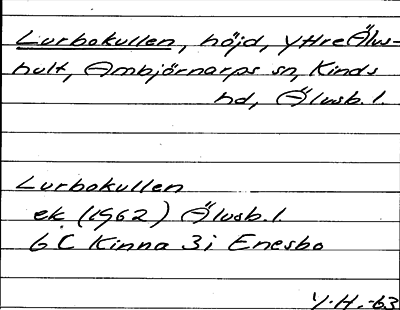 Lurbokullen, höjd, Yttre Älvs-
hult, Ambjörnarps sn, Kinds
hd, Älvsb. l.
Lurbokullen
ek (1962) Älvsb. l.
6 C Kinna 3 i Enesbo
Y. H. -63